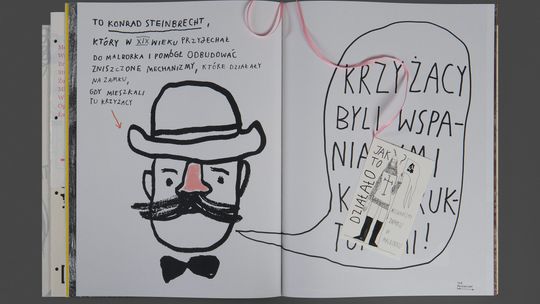 TO KONRAD STEINBRECHT,
KTÓRY W XIX WIEKU PRZYJECHAŁ
DO MALBORKA I POMÓGŁ ODBUDOWAĆ
ZNISZCZONE MECHANIZMY, KTÓRE DZIAŁAŁY
NA ZAMKU,
GDY MIESZKALI
TU KRZYŻACY
KRZYŻACY
BYLI WSPA-
NIA MI
K UK-
TO MI!
JAK
TO
DZIAŁAŁO